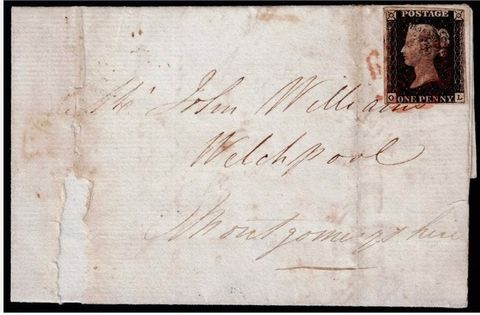 POSTAGE
ONE PENNY
O L
Mr John Williams
Welchpool
Montgomeryshire